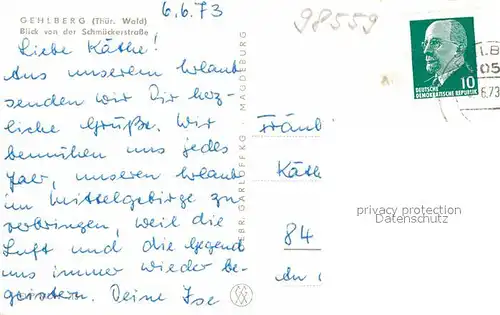 6.6.73
98559
GEHLBERG (Thür. Wald)
Blick von der Schmückerstraße
Liebe Käthe!
Aus unserem Urlaub
senden wir Dir herz-
liche Grüße. Wir
bemühen uns jedes
Jahr, unseren Urlaub
im Mittelgebirge zu
verbringen, weil die
Luft und die Gegend
uns immer wieder be-
geistern. Deine Ilse
GEBR. GARLOFF KG. MAGDEBURG
10
DEUTSCHE
DEMOKRATISCHE REPUBLIK
6.73
Fräul
Käthe
84
An
privacy protection
Datenschutz